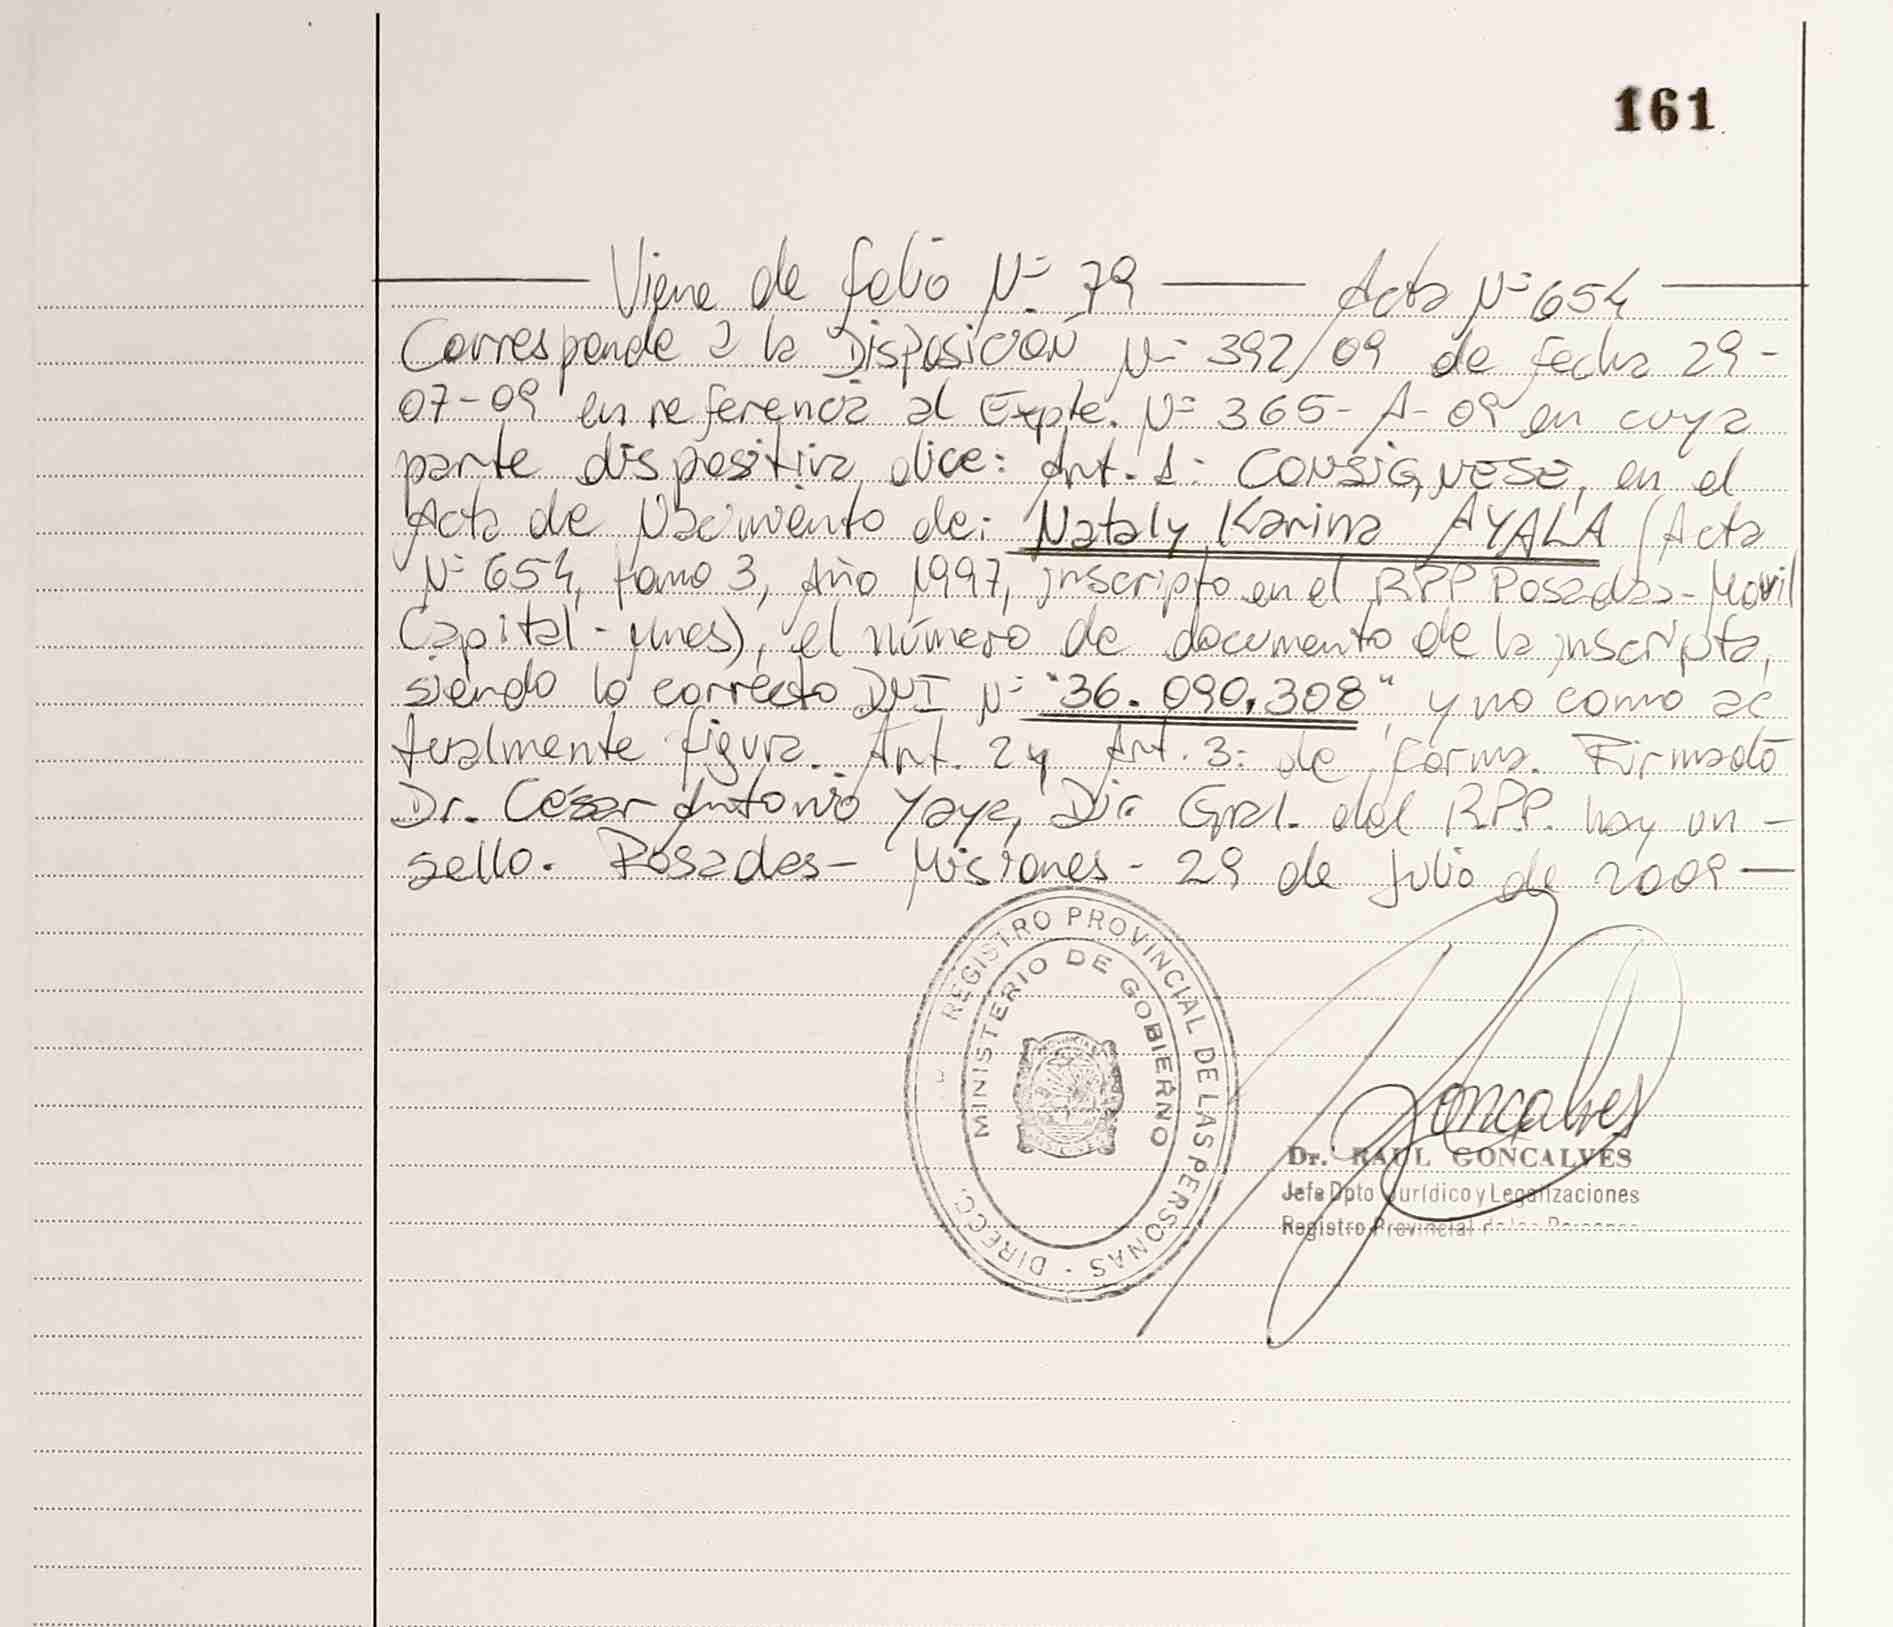 161
Viene de folio Nº 79 Acta Nº 654
Corresponde a la Disposición Nº 392/09 de fecha 29-
07-09 en referencia al Expte. Nº 365-A-09 en cuya
parte dispositiva dice: Art. 1: CONSIGNESE, en el
Acta de Nacimiento de: Nataly Karina AYALA (Acta
Nº 654, tomo 3, Año 1997, inscripto en el RPP Posadas-Movil
Capital-Mnes), el número de documento de la inscripta,
siendo lo correcto DNI Nº "36.090.308", y no como ac
tualmente figura. Art. 2 y Art. 3: de forma. Firmado
Dr. César Antonio Yaya, Dir. Gral. del R.P.P. hay un -
sello. Posadas- Misiones - 29 de Julio de 2009 —
REGISTRO PROVINCIAL DE LAS PERSONAS - DIRECC.
MINISTERIO DE GOBIERNO
Goncalves
Dr. RAUL GONCALVES
Jefe Dpto Jurídico y Legalizaciones
Registro Provincial de las Personas